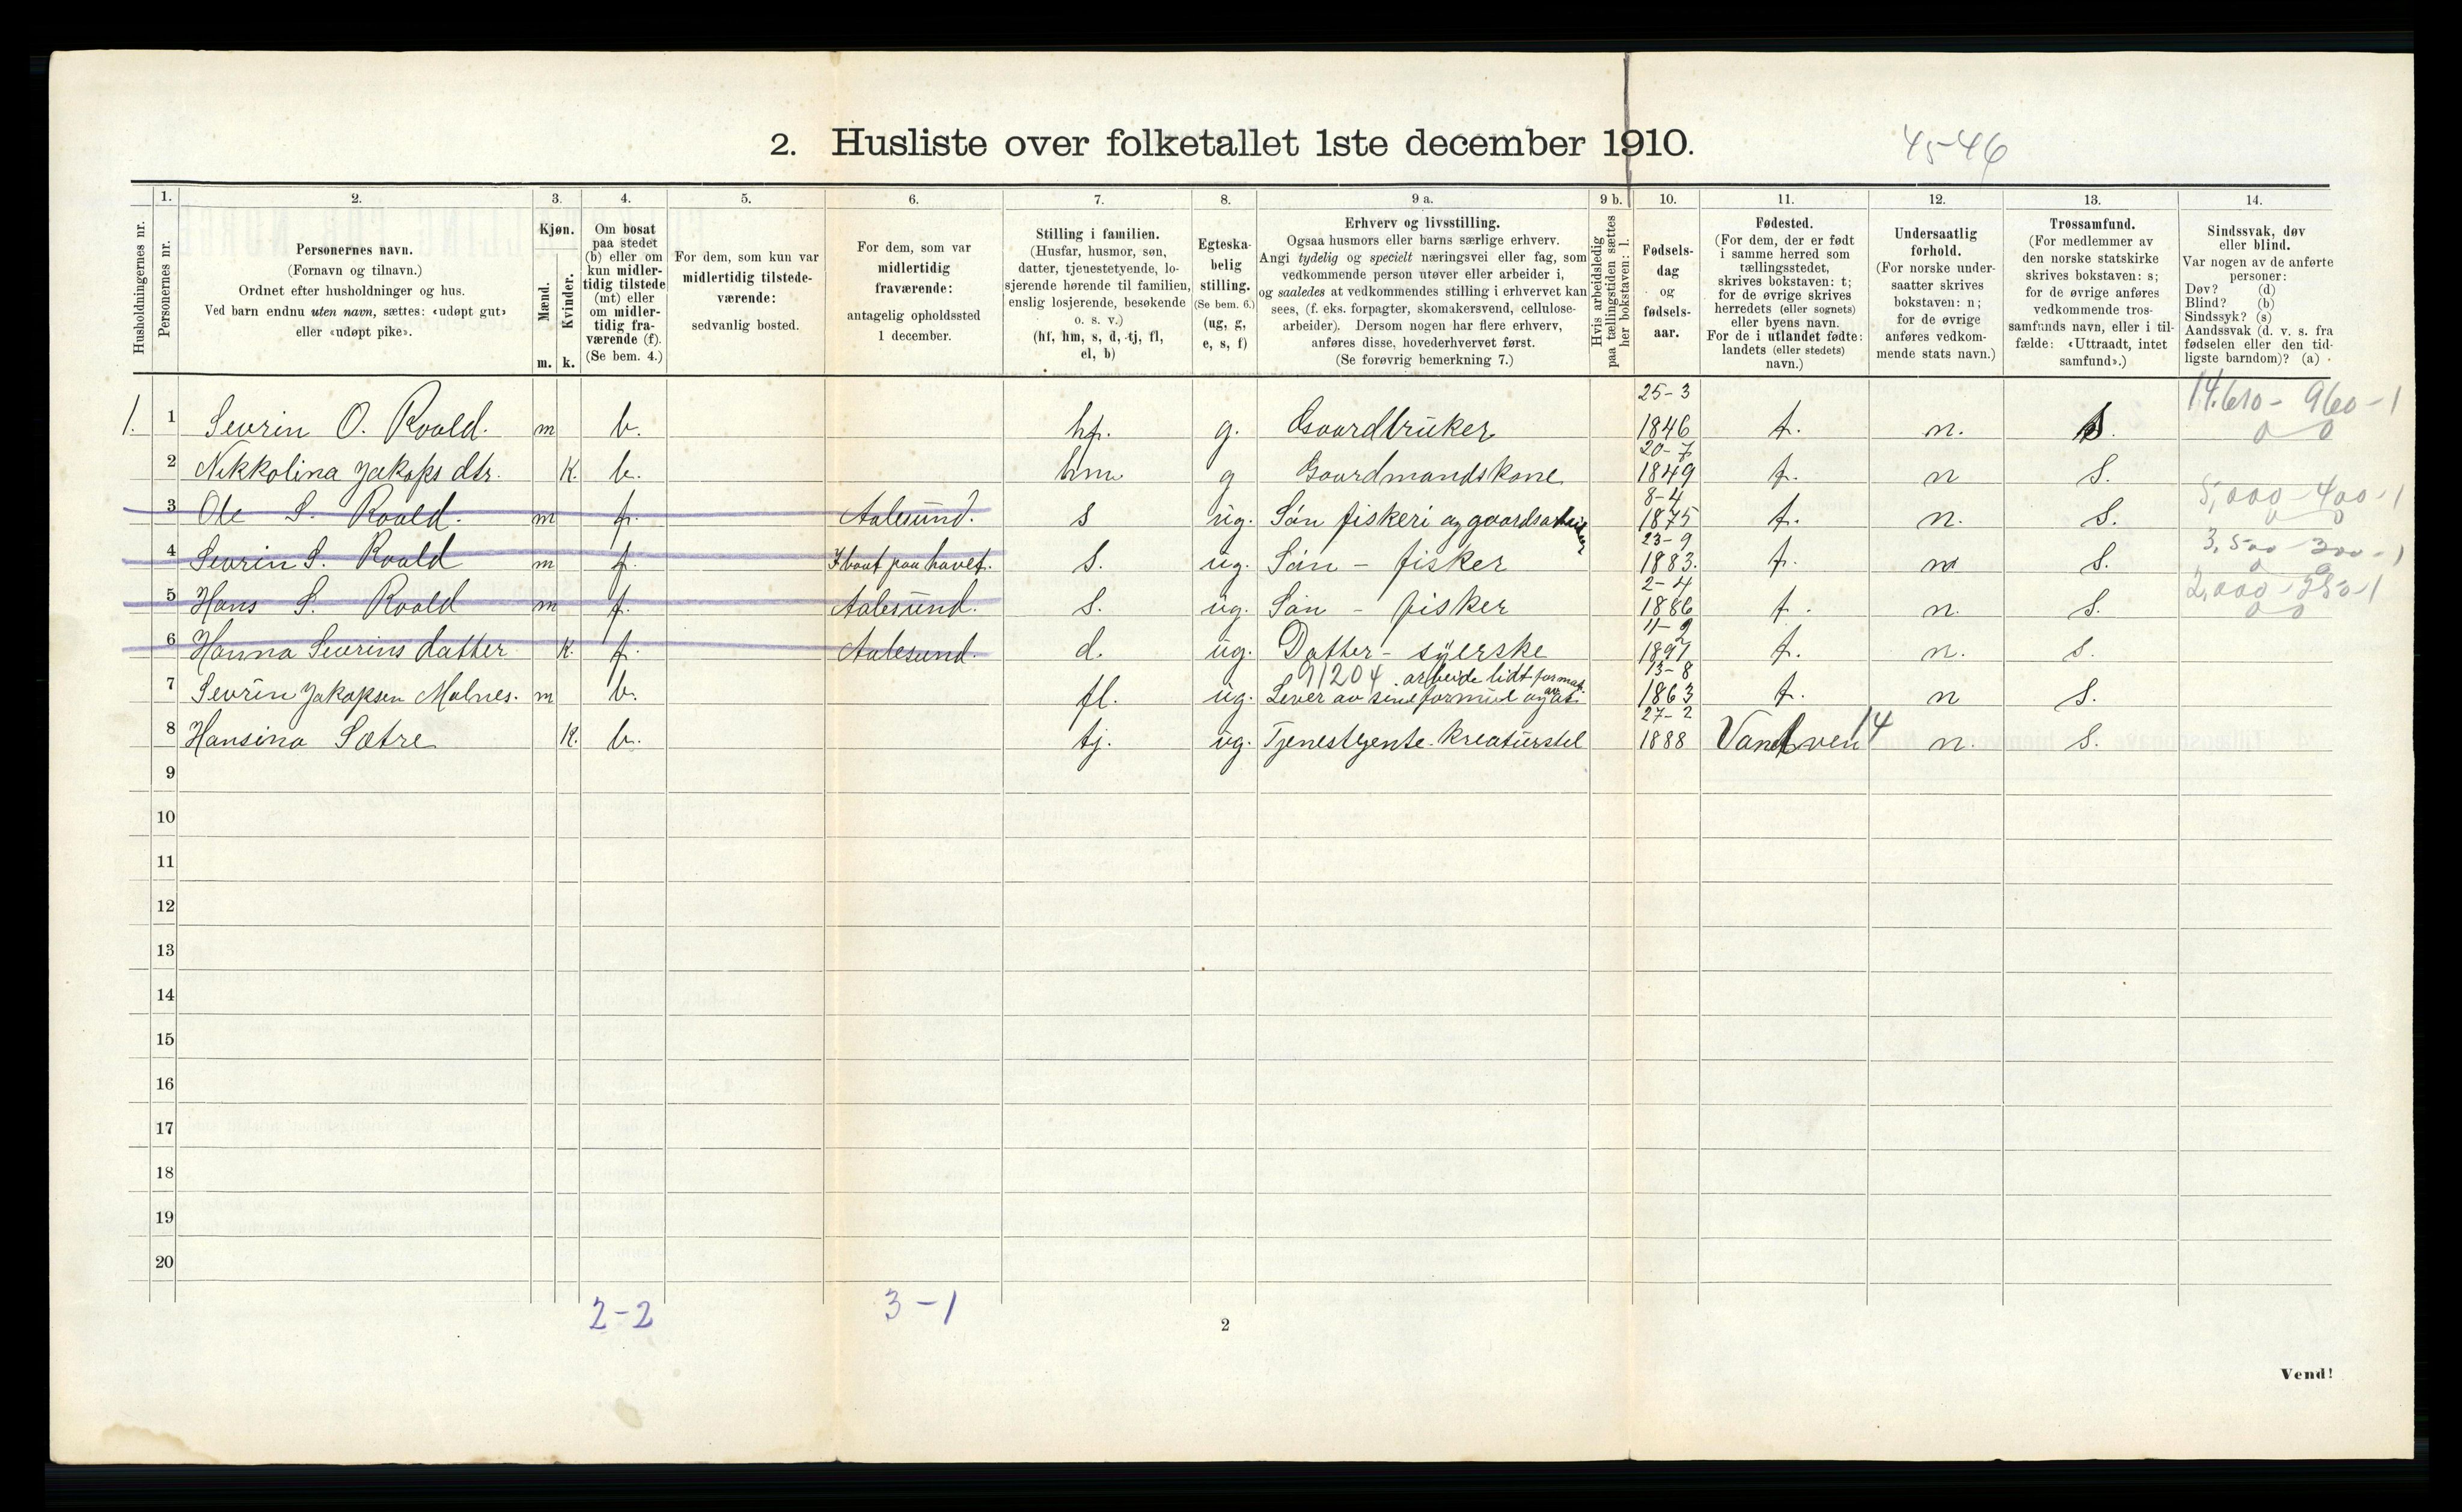 2. Husliste over folketallet 1ste december 1910.
45-46
Husholdningernes nr.
1.
Personernes nr.
2.
Personernes navn.
(Fornavn og tilnavn.)
Ordnet efter husholdninger og hus.
Ved barn endnu uten navn, sættes: «udøpt gut»
eller «udøpt pike».
3.
Kjøn.
Mænd.
Kvinder.
m. k.
4.
Om bosat
paa stedet
(b) eller om
kun midler-
tidig tilstede
(mt) eller
om midler-
tidig fra-
værende (f).
(Se bem. 4.)
5.
For dem, som kun var
midlertidig tilstede-
værende:
sedvanlig bosted.
6.
For dem, som var
midlertidig
fraværende:
antagelig opholdssted
1 december.
7.
Stilling i familien.
(Husfar, husmor, søn,
datter, tjenestetyende, lo-
sjerende hørende til familien,
enslig losjerende, besøkende
o. s. v.)
(hf, hm, s, d, tj, fl,
el, b)
8.
Egteska-
belig
stilling.
(Se bem. 6.)
(ug, g,
e, s, f)
9 a.
Erhverv og livsstilling.
Ogsaa husmors eller barns særlige erhverv.
Angi tydelig og specielt næringsvei eller fag, som
vedkommende person utøver eller arbeider i,
og saaledes at vedkommendes stilling i erhvervet kan
sees, (f. eks. forpagter, skomakersvend, cellulose-
arbeider). Dersom nogen har flere erhverv,
anføres disse, hovederhvervet først.
(Se forøvrig bemerkning 7.)
9 b.
Hvis arbeidsledig
paa tællingstiden sættes
her bokstaven: l.
10.
Fødsels-
dag
og
fødsels-
aar.
11.
Fødested.
(For dem, der er født
i samme herred som
tællingsstedet,
skrives bokstaven: t;
for de øvrige skrives
herredets (eller sognets)
eller byens navn.
For de i utlandet fødte:
landets (eller stedets)
navn.)
12.
Undersaatlig
forhold.
(For norske under-
saatter skrives
bokstaven: n;
for de øvrige
anføres vedkom-
mende stats navn.)
13.
Trossamfund.
(For medlemmer av
den norske statskirke
skrives bokstaven: s;
for de øvrige anføres
vedkommende tros-
samfunds navn, eller i til-
fælde: «Uttraadt, intet
samfund».)
14.
Sindssvak, døv
eller blind.
Var nogen av de anførte
personer:
Døv? (d)
Blind? (b)
Sindssyk? (s)
Aandssvak (d. v. s. fra
fødselen eller den tid-
ligste barndom)? (a)
1. 1 Sevrin O. Roald. m b. hf. g. Gaardbruker 25-3 1846 t. n. S. 14.610 - 960 - 1 0 0
2 Nikkolina Jakops dtr. K. b. hm g Gaardmandskone 20-7 1849 t. n S.
3 Ole S. Roald. m f. Aalesund. s ug. Søn fiskeri og gaardsarbeider 8-4 1875 t. n. S. 5,000 - 400 - 1 0 0
4 Sevrin S. Roald m f. I baat paa havet. S. ug. Søn - fisker 23-9 1883. t. n S. 3,500 - 300 - 1 0 0
5 Hans S. Roald m f. Aalesund. S. ug. Søn - fisker 2-4 1886 t. n. S. 2,000 - 250 - 1 0 0
6 Hanna Sevrins datter K. f. Aalesund. d. ug. Datter - syerske 11-2 1891 t. n. S.
91204 arbeide lidt for mat.
7 Sevrin Jakopsen Molnes. m b. fl. ug. Lever av sine formue og 13-8 1863 t. n S.
8 Hansina Sætre K. b. tj. ug. Tjenestgente. Kreaturstel 27-2 1888 Vandven 14 n. S.
9
10
11
12
13
14
15
16
17
18
19
20
2-2 3-1
2
Vend!